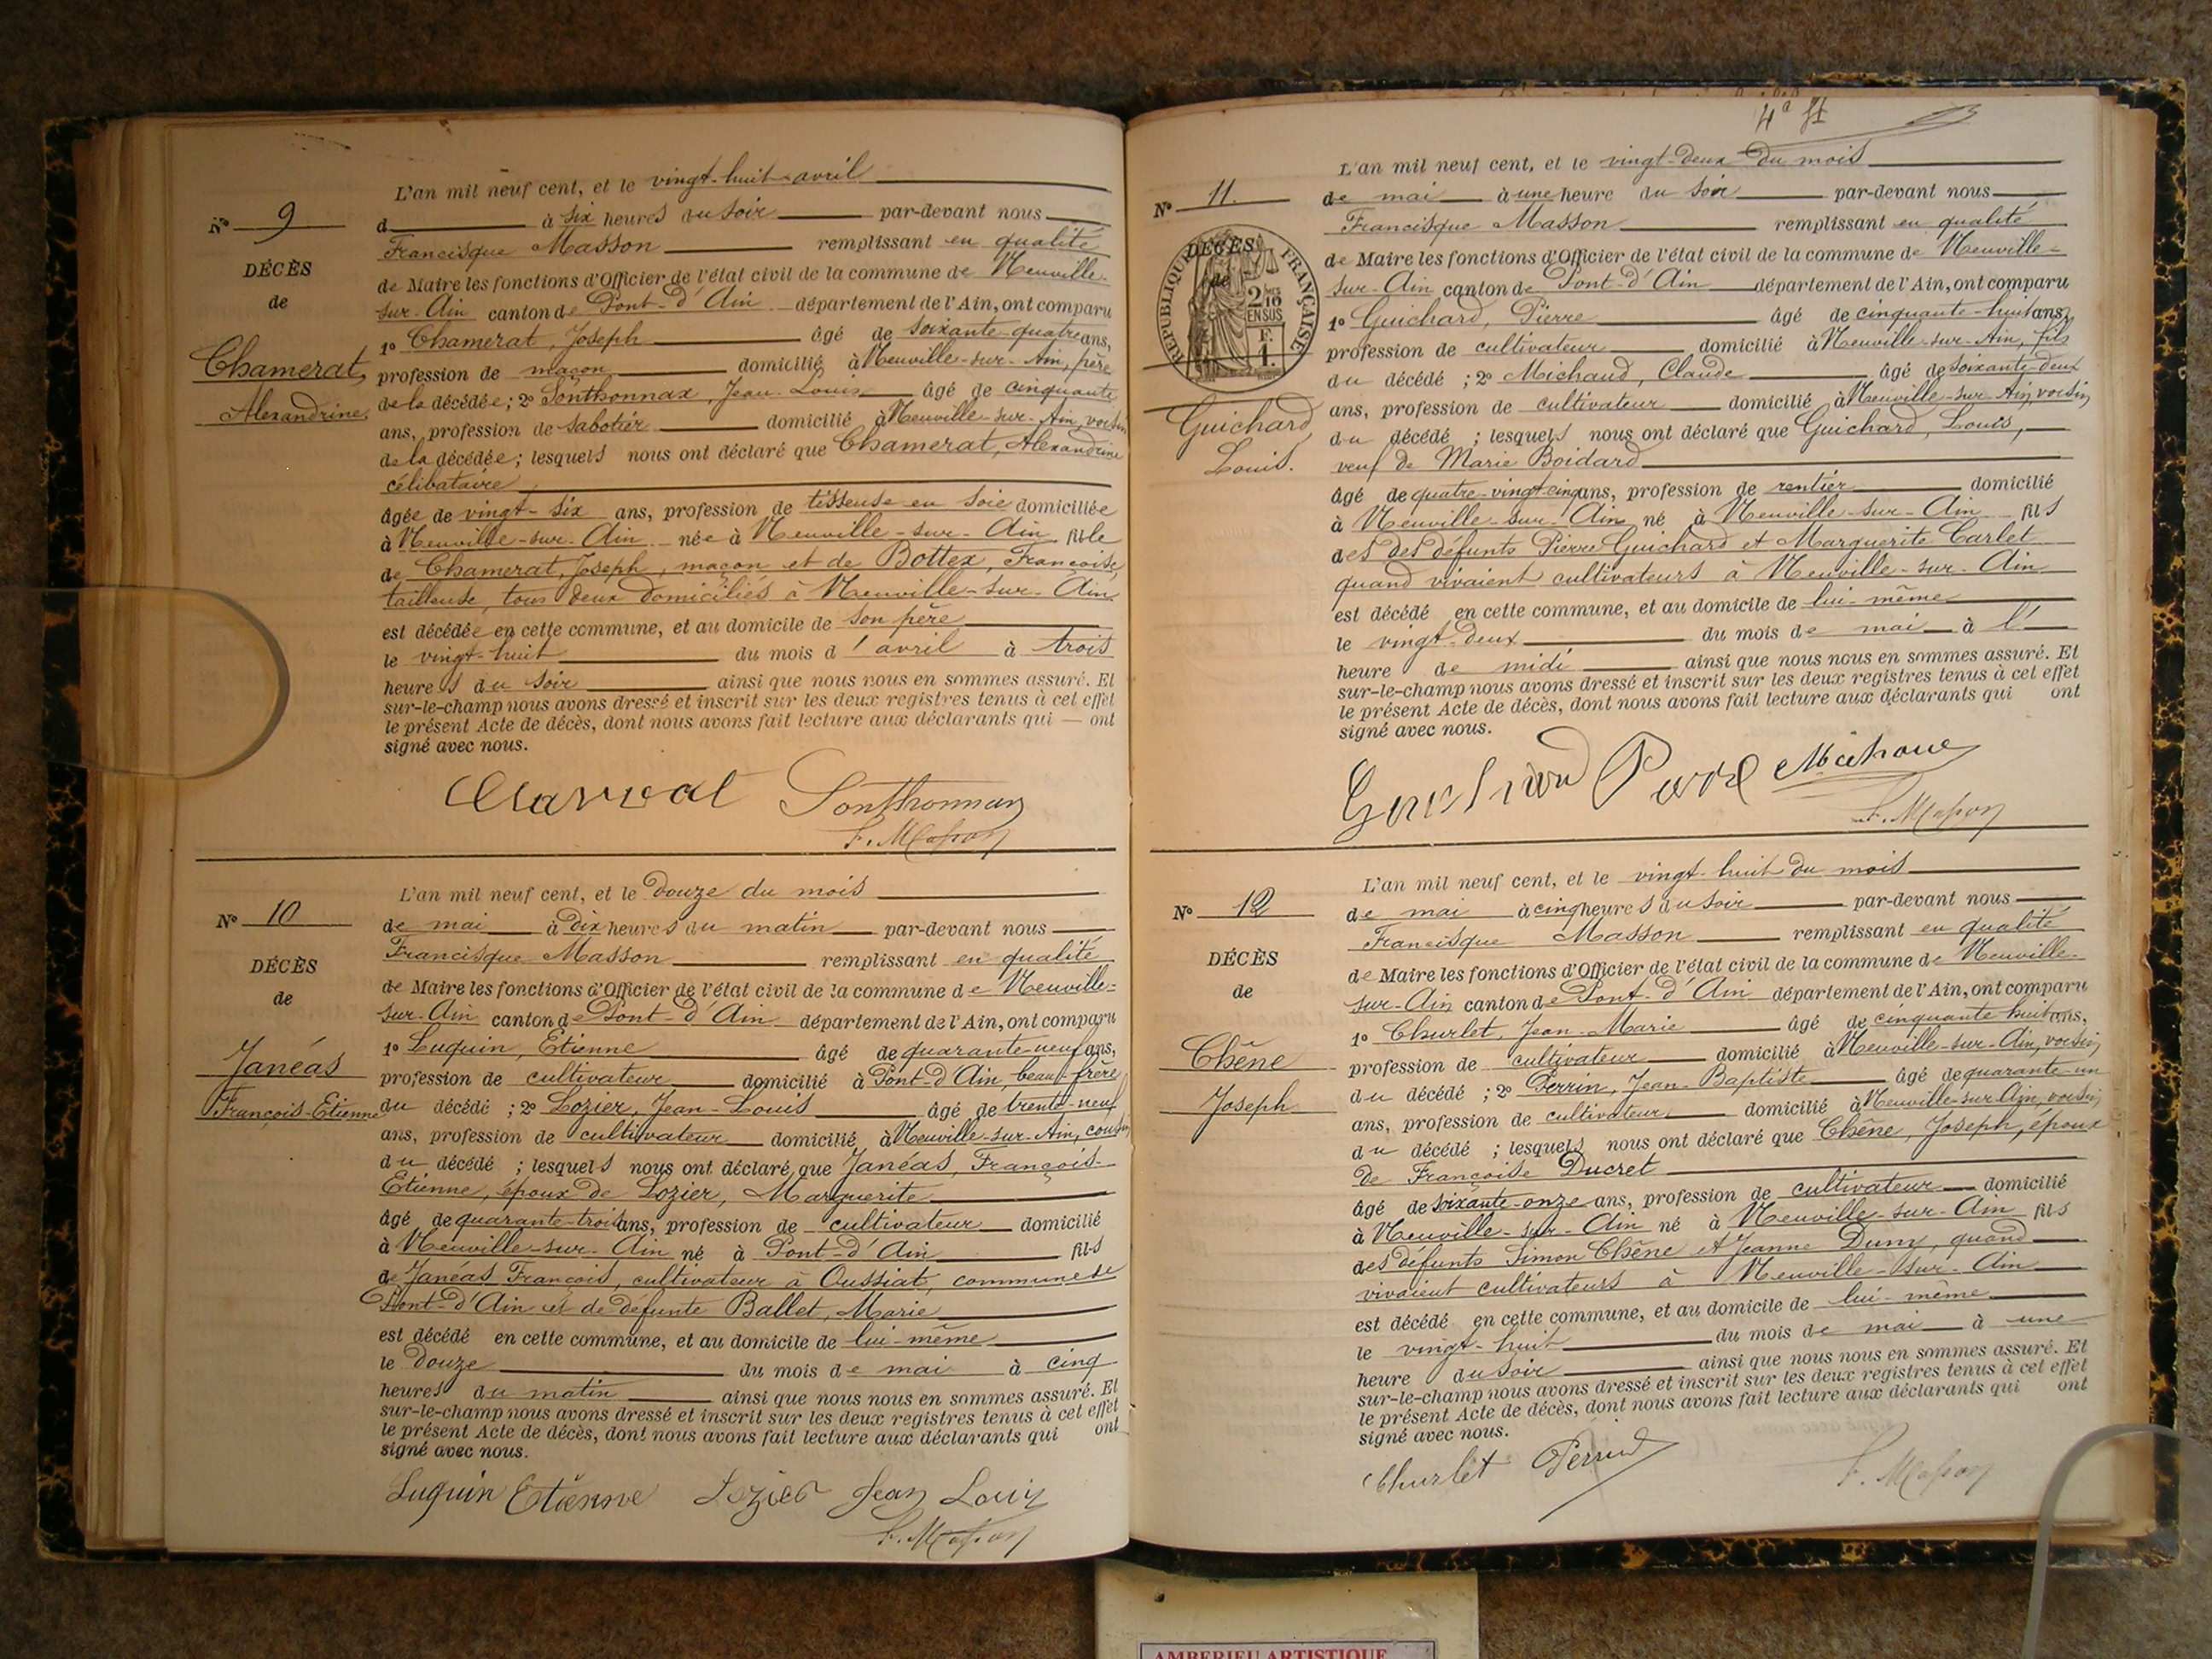 L'an mil neuf cent, et le vingt-huit avril
N° 9
d à six heures du soir par-devant nous
Francisque Masson remplissant en qualité
DÉCÈS
de Maire les fonctions d'Officier de l'état civil de la commune de Neuville-
de
sur-Ain canton de Pont-d'Ain département de l'Ain, ont comparu
1° Chamerat, Joseph âgé de soixante-quatre ans,
Chamerat,
profession de maçon domicilié à Neuville-sur-Ain, père
de la décédée; 2° Sonthonnax, Jean-Louis âgé de cinquante
Alexandrine.
ans, profession de sabotier domicilié à Neuville-sur-Ain, voisin
de la décédée; lesquels nous ont déclaré que Chamerat, Alexandrine
célibataire
âgée de vingt-six ans, profession de tisseuse en soie domiciliée
à Neuville-sur-Ain née à Neuville-sur-Ain fille
de Chamerat, Joseph, maçon et de Bottex, Françoise,
tailleuse, tous deux domiciliés à Neuville-sur-Ain
est décédée en cette commune, et au domicile de son père
le vingt-huit du mois d'avril à trois
heures du soir ainsi que nous nous en sommes assuré. Et
sur-le-champ nous avons dressé et inscrit sur les deux registres tenus à cet effet
le présent Acte de décès, dont nous avons fait lecture aux déclarants qui — ont
signé avec nous.
Sonthonnax
F. Masson
L'an mil neuf cent, et le douze du mois
N° 10
de mai à dix heures du matin par-devant nous
Francisque Masson remplissant en qualité
DÉCÈS
de Maire les fonctions d'Officier de l'état civil de la commune de Neuville-
de
sur-Ain canton de Pont-d'Ain département de l'Ain, ont comparu
1° Luquin, Etienne âgé de quarante-neuf ans,
Janéas
profession de cultivateur domicilié à Pont-d'Ain, beau-frère
François-Etienne
du décédé; 2° Lozier, Jean-Louis âgé de trente-neuf
ans, profession de cultivateur domicilié à Neuville-sur-Ain, cousin
du décédé; lesquels nous ont déclaré que Janéas, François-
Etienne, époux de Lozier, Marguerite
âgé de quarante-trois ans, profession de cultivateur domicilié
à Neuville-sur-Ain né à Pont-d'Ain fils
de Janéas François, cultivateur à Oussiat, commune de
Pont-d'Ain et de défunte Ballet, Marie
est décédé en cette commune, et au domicile de lui-même
le douze du mois de mai à cinq
heures du matin ainsi que nous nous en sommes assuré. Et
sur-le-champ nous avons dressé et inscrit sur les deux registres tenus à cet effet
le présent Acte de décès, dont nous avons fait lecture aux déclarants qui ont
signé avec nous.
Luquin Etienne Lozier Jean Louis
F. Masson
L'an mil neuf cent, et le vingt-deux du mois
N° 11.
de mai à une heure du soir par-devant nous
Francisque Masson remplissant en qualité
DÉCÈS
de Maire les fonctions d'Officier de l'état civil de la commune de Neuville-
de
RÉPUBLIQUE FRANÇAISE
2/10 EN SUS
F. 1
sur-Ain canton de Pont-d'Ain département de l'Ain, ont comparu
1° Guichard, Pierre âgé de cinquante-huit ans,
profession de cultivateur domicilié à Neuville-sur-Ain, fils
du décédé; 2° Michaud, Claude âgé de soixante-deux
ans, profession de cultivateur domicilié à Neuville-sur-Ain, voisin
Guichard
du décédé; lesquels nous ont déclaré que Guichard, Louis,
Louis.
veuf de Marie Boidard
âgé de quatre-vingt-cinq ans, profession de rentier domicilié
à Neuville-sur-Ain né à Neuville-sur-Ain fils
des des défunts Pierre Guichard et Marguerite Carlet
quand vivaient cultivateurs à Neuville-sur-Ain
est décédé en cette commune, et au domicile de lui-même
le vingt-deux du mois de mai à l'
heure de midi ainsi que nous nous en sommes assuré. Et
sur-le-champ nous avons dressé et inscrit sur les deux registres tenus à cet effet
le présent Acte de décès, dont nous avons fait lecture aux déclarants qui ont
signé avec nous.
F. Masson
L'an mil neuf cent, et le vingt-huit du mois
N° 12
de mai à cinq heures du soir par-devant nous
Francisque Masson remplissant en qualité
DÉCÈS
de Maire les fonctions d'Officier de l'état civil de la commune de Neuville-
de
sur-Ain canton de Pont-d'Ain département de l'Ain, ont comparu
1° Churlet, Jean-Marie âgé de cinquante huit ans,
Chêne
profession de cultivateur domicilié à Neuville-sur-Ain, voisin
Joseph
du décédé; 2° Perrin, Jean-Baptiste âgé de quarante-un
ans, profession de cultivateur domicilié à Neuville-sur-Ain, voisin
du décédé; lesquels nous ont déclaré que Chêne, Joseph, époux
de Françoise Ducret
âgé de soixante-onze ans, profession de cultivateur domicilié
à Neuville-sur-Ain né à Neuville-sur-Ain fils
des défunts Simon Chêne et Jeanne Duny, quand
vivaient cultivateurs à Neuville-sur-Ain
est décédé en cette commune, et au domicile de lui-même
le vingt-huit du mois de mai à une
heure du soir ainsi que nous nous en sommes assuré. Et
sur-le-champ nous avons dressé et inscrit sur les deux registres tenus à cet effet
le présent Acte de décès, dont nous avons fait lecture aux déclarants qui ont
signé avec nous.
Churlet Perrin
F. Masson
AMBERIEU ARTISTIQUE